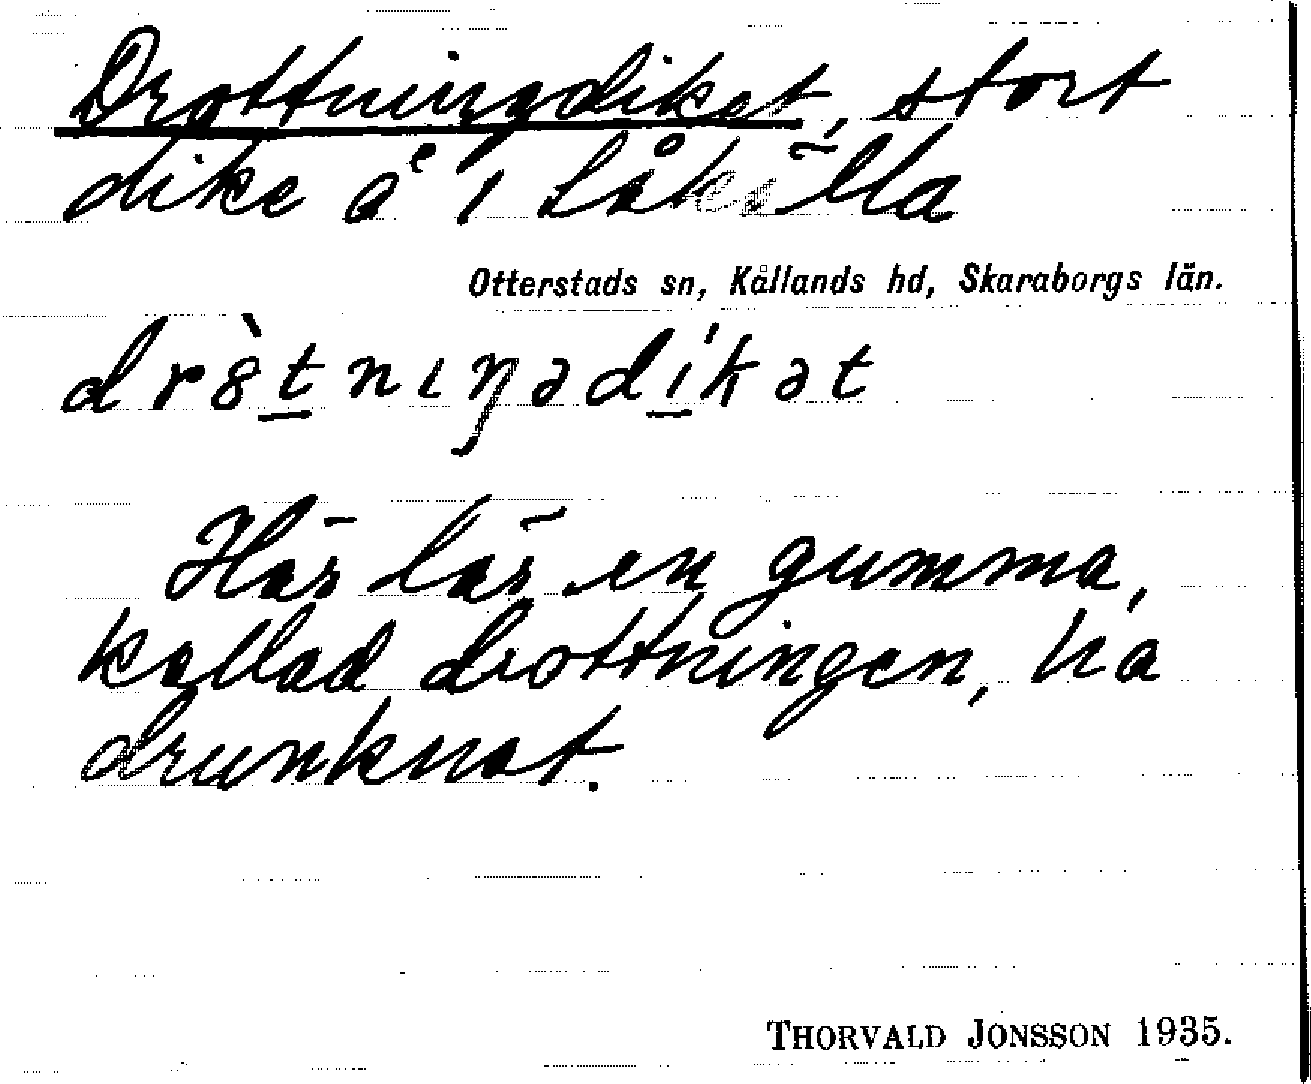 Drottningdiket, stort
dike å i Låkälla
Otterstads sn, Kållands hd, Skaraborgs län.
drȣ̀tnıŋədíkət
Här lär en gumma,
kallad drottningen, ha
drunknat.
THORVALD JONSSON 1935.